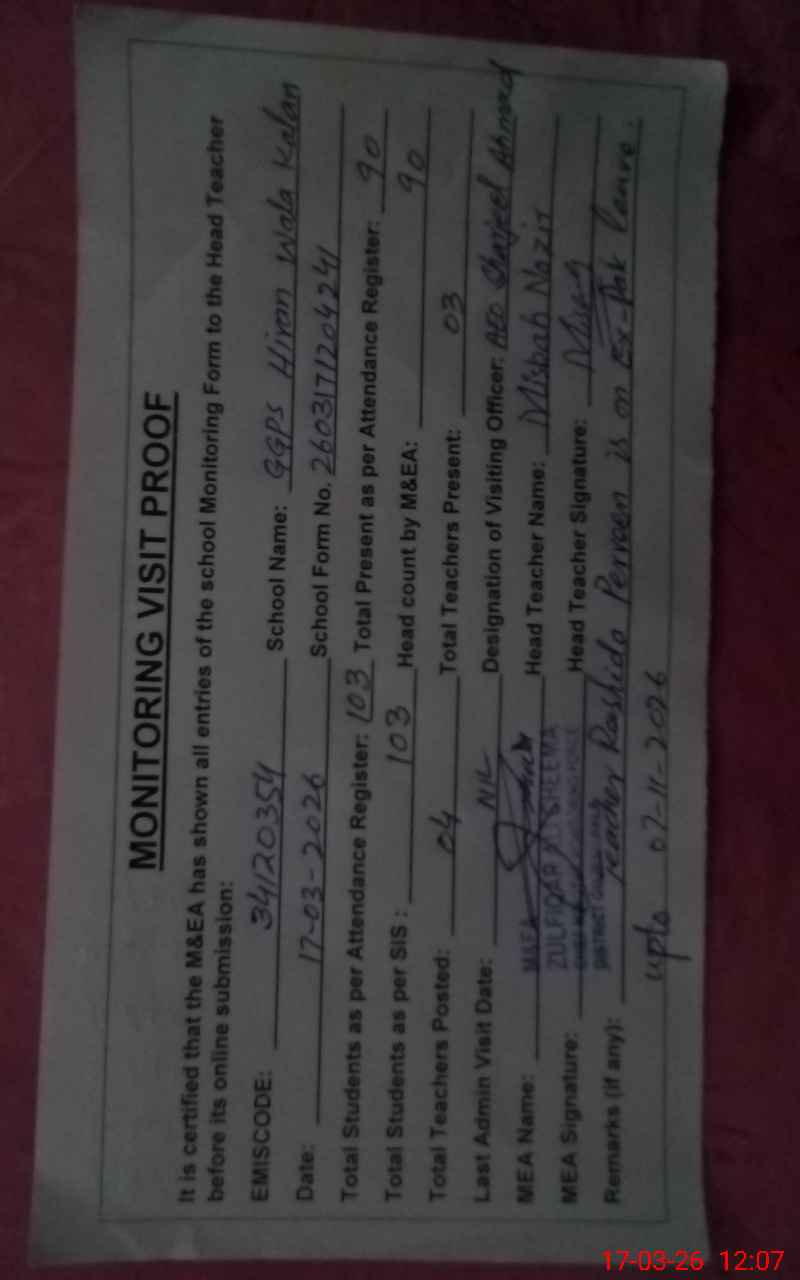 MONITORING VISIT PROOF
It is certified that the M&EA has shown all entries of the school Monitoring Form to the Head Teacher
before its online submission:
EMISCODE: 34120354 School Name: GGPS Hiran Wala Kalan
Date: 17-03-2026 School Form No. 260317120424
Total Students as per Attendance Register: 103 Total Present as per Attendance Register: 90
Total Students as per SIS : 103 Head count by M&EA: 90
Total Teachers Posted: 04 Total Teachers Present: 03
Last Admin Visit Date: NIL Designation of Visiting Officer: AEO Sharjeel Ahmad
MEA Name: M&EA ZULFIQAR ALI CHEEMA Head Teacher Name: Misbah Nazir
MEA Signature: Head Teacher Signature:
Remarks (if any): Teacher Rashida Perveen is on Ex-Pak leave.
upto 07-11-2026
17-03-26 12:07